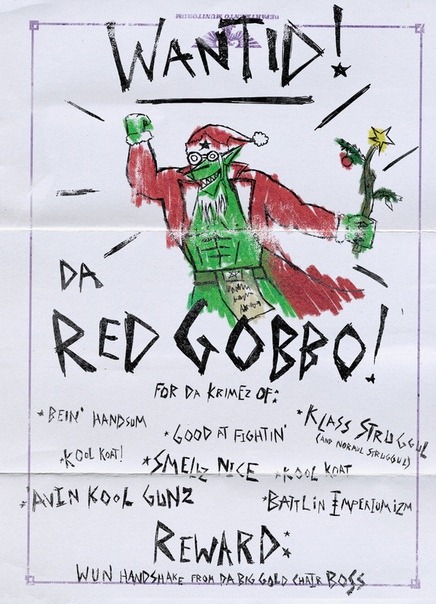 WANTID!
DA
RED GOBBO!
FOR DA KRIMEZ OF:
*BEIN' HANDSUM
*GOOD AT FIGHTIN'
*KLASS STRUGGUL
(AND NORMUL STRUGGUL)
*KOOL KOAT!
*SMELLZ NICE
*KOOL KOAT
*'AVIN KOOL GUNZ
*BATTLIN IMPERIUMIZM
REWARD:
WUN HANDSHAKE FROM DA BIG GOLD CHAIR BOSS